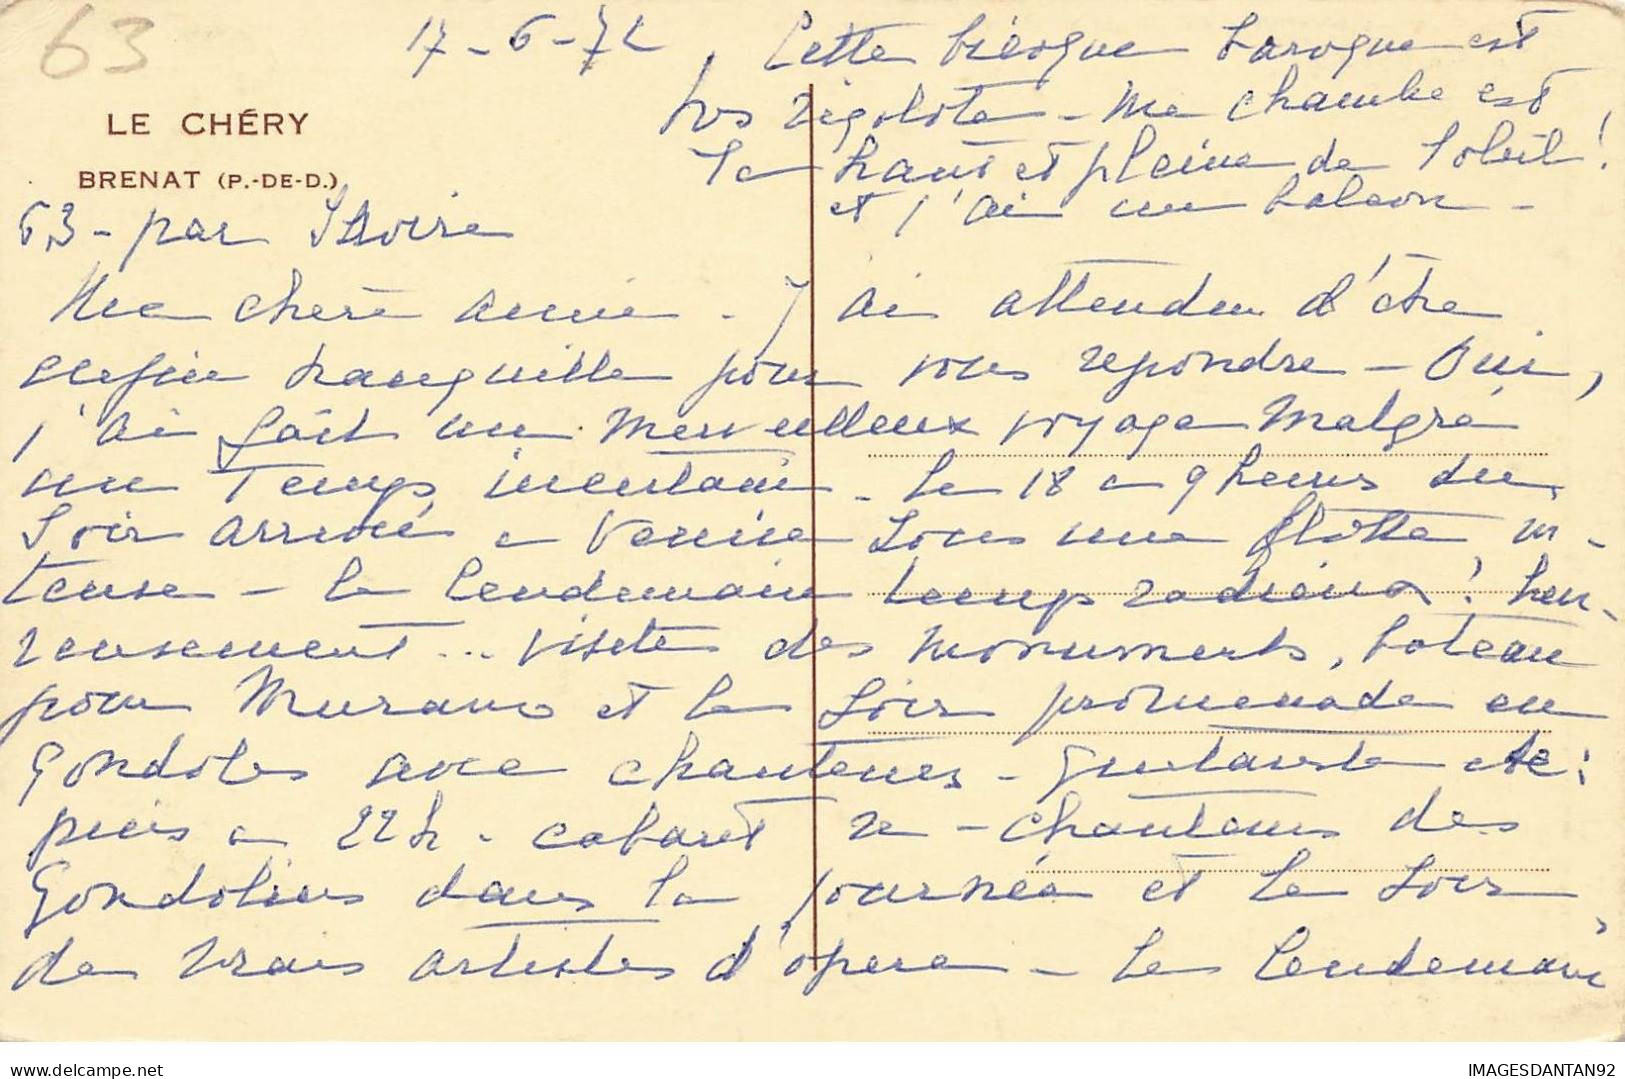 63
17-6-72
Cette bicoque baroque est
très rigolote - Ma chambre est
la haut et pleine de soleil !
et j'ai un balcon -
LE CHÉRY
BRENAT (P.-DE-D.)
63 - par Issoire
Ma chère amie - J'ai attendu d'être
enfin tranquille pour vous repondre - Oui,
j'ai fait un merveilleux voyage malgré
un temps incertain - Le 18 a 9 heures du
soir arrivée a Venise sous une flotte in-
tense - le lendemain temps radieux ! heu-
reusement ... visites des monuments, bateau
pour Murano et le soir promenade en
Gondoles avec chanteurs - guitariste etc :
puis a 22 h - cabaret re-chanteurs des
Gondoliers dans la journée et le soir
de vrais artistes d'opera - Le lendemain
IMAGESDANTAN92
www.delcampe.net